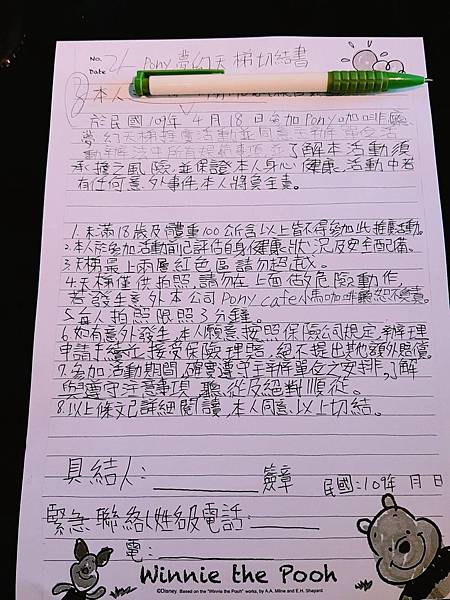 No. 26 Pony夢幻天梯切結書
Date
本人
於民國109年4月18日參加Pony咖啡廳
夢幻天梯推廣活動並同意主辦單位活
動辦法中所有規範事項並了解本活動須
承擔之風險並保證本人身心健康.活動中若
有任何意外事件本人將負全責。
1.未滿18歲及體重100公斤含以上皆不得參加此推廣活動。
2.本人於參加活動前已評估自身健康狀況及安全配備。
3.天梯最上兩層紅色區請勿超越。
4.天梯僅供拍照.請勿在上面做危險動作
若發生意外本公司Pony cafe小馬咖啡廳恕不負責。
5.每人拍照限照3分鐘。
6.如有意外發生,本人願意按照保險公司規定辦理
申請手續並接受保險理賠,絕不提出其他額外賠償。
7.參加活動期間,確實遵守主辦單位之安排,了解
與遵守注意事項,聽從及絕對順從。
8.以上條文已詳細閱讀,本人同意以上切結。
具結人: 簽章 民國:109年 月 日
緊急聯絡人姓名及電話:
電:
Winnie the Pooh
©Disney. Based on the "Winnie the Pooh" works, by A.A. Milne and E.H. Shepard.